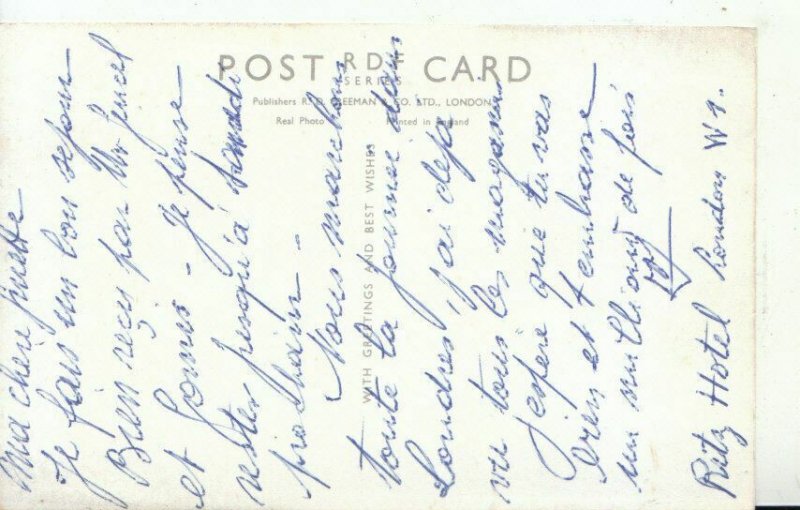 POST CARD
RDF
SERIES
Publishers R. D. FREEMAN & CO. LTD., LONDON
Real Photo Printed in England
WITH GREETINGS AND BEST WISHES
Ma chère
Je fais un bon sejour
Bien reçu par
et - Je pense
rester jusqu'à
prochain -
Nous marchons
toute la journée dans
Londres, j'ai deja
vu tous les magasins
J'espère que tu vas
bien et t'embrasse
un million de fois
Ritz Hotel London W1.